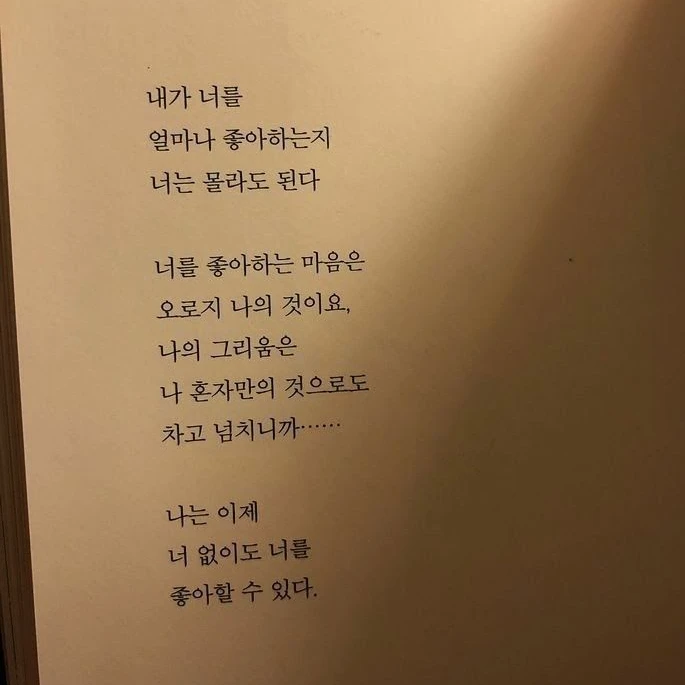 내가 너를
얼마나 좋아하는지
너는 몰라도 된다
너를 좋아하는 마음은
오로지 나의 것이요,
나의 그리움은
나 혼자만의 것으로도
차고 넘치니까……
나는 이제
너 없이도 너를
좋아할 수 있다.